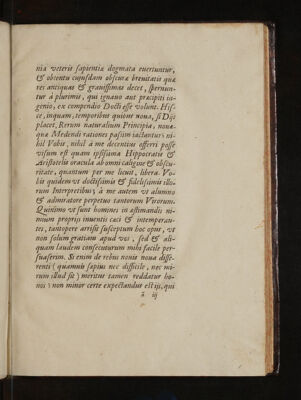 nia veteris sapientiæ dogmata euertuntur,
& obtentu cuiusdam obscuræ breuitatis quæ
res antiquas & grauissimas decet, spernun-
tur à plurimis, qui ignauo aut præcipiti in-
genio, ex compendio Docti esse volunt. His-
ce, inquam, temporibus quione noua, si Dijs
placet, Rerum naturalium Principia, nouæ-
que Medendi rationes passim iactantur: ni-
hil Vobis, nihil à me decentius offerri posse
visum est quam ipsissima Hippocratis &
Aristotelis oracula ab omni caligine & obscu-
ritate, quantum per me licuit, libera. Vo-
bis quidem vt doctissimis & fidelissimis illo-
rum Interpretibus; à me autem vt alumno
& admiratore perpetuo tantorum Virorum.
Quinimo vt sunt homines in æstimandis ni-
mium proprijs inuentis cæci & intemperan-
tes, tantopere arrisit susceptum hoc opus, vt
non solum gratiam apud vos, sed & ali-
quam laudem consecuturum mihi facile per-
suaserim. Si enim de rebus nouis noua disse-
renti (quamuis sæpius nec difficile, nec mi-
rum illud sit) meritus tamen reddatur ho-
nos: non minor certe expectandus est ijs, qui
ã iij